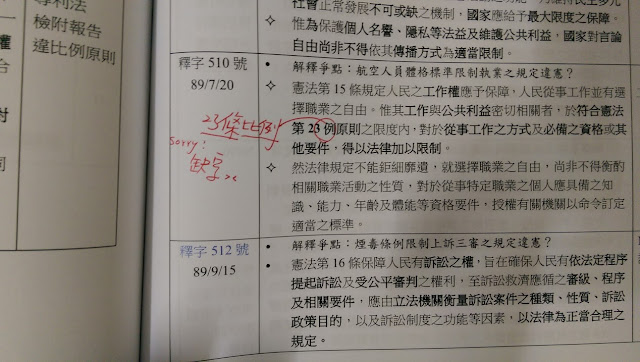 專利法
檢附報告
違比例原則
權
台
對
司
社會正常發展不可或缺之機制,國家應給予最大限度之保障。
✧ 惟為保護個人名譽、隱私等法益及維護公共利益,國家對言論
自由尚非不得依其傳播方式為適當限制。
釋字 510 號
89/7/20
• 解釋爭點:航空人員體格標準限制執業之規定違憲?
✧ 憲法第 15 條規定人民之工作權應予保障,人民從事工作並有選
擇職業之自由。惟其工作與公共利益密切相關者,於符合憲法
第 23 例原則之限度內,對於從事工作之方式及必備之資格或其
他要件,得以法律加以限制。
23條比例
sorry!
缺字
✧ 然法律規定不能鉅細靡遺,就選擇職業之自由,尚非不得衡酌
相關職業活動之性質,對於從事特定職業之個人應具備之知
識、能力、年齡及體能等資格要件,授權有關機關以命令訂定
適當之標準。
釋字 512 號
89/9/15
• 解釋爭點:煙毒條例限制上訴三審之規定違憲?
• 憲法第 16 條保障人民有訴訟之權,旨在確保人民有依法定程序
提起訴訟及受公平審判之權利,至訴訟救濟應循之審級、程序
及相關要件,應由立法機關衡量訴訟案件之種類、性質、訴訟
政策目的,以及訴訟制度之功能等因素,以法律為正當合理之
規定。